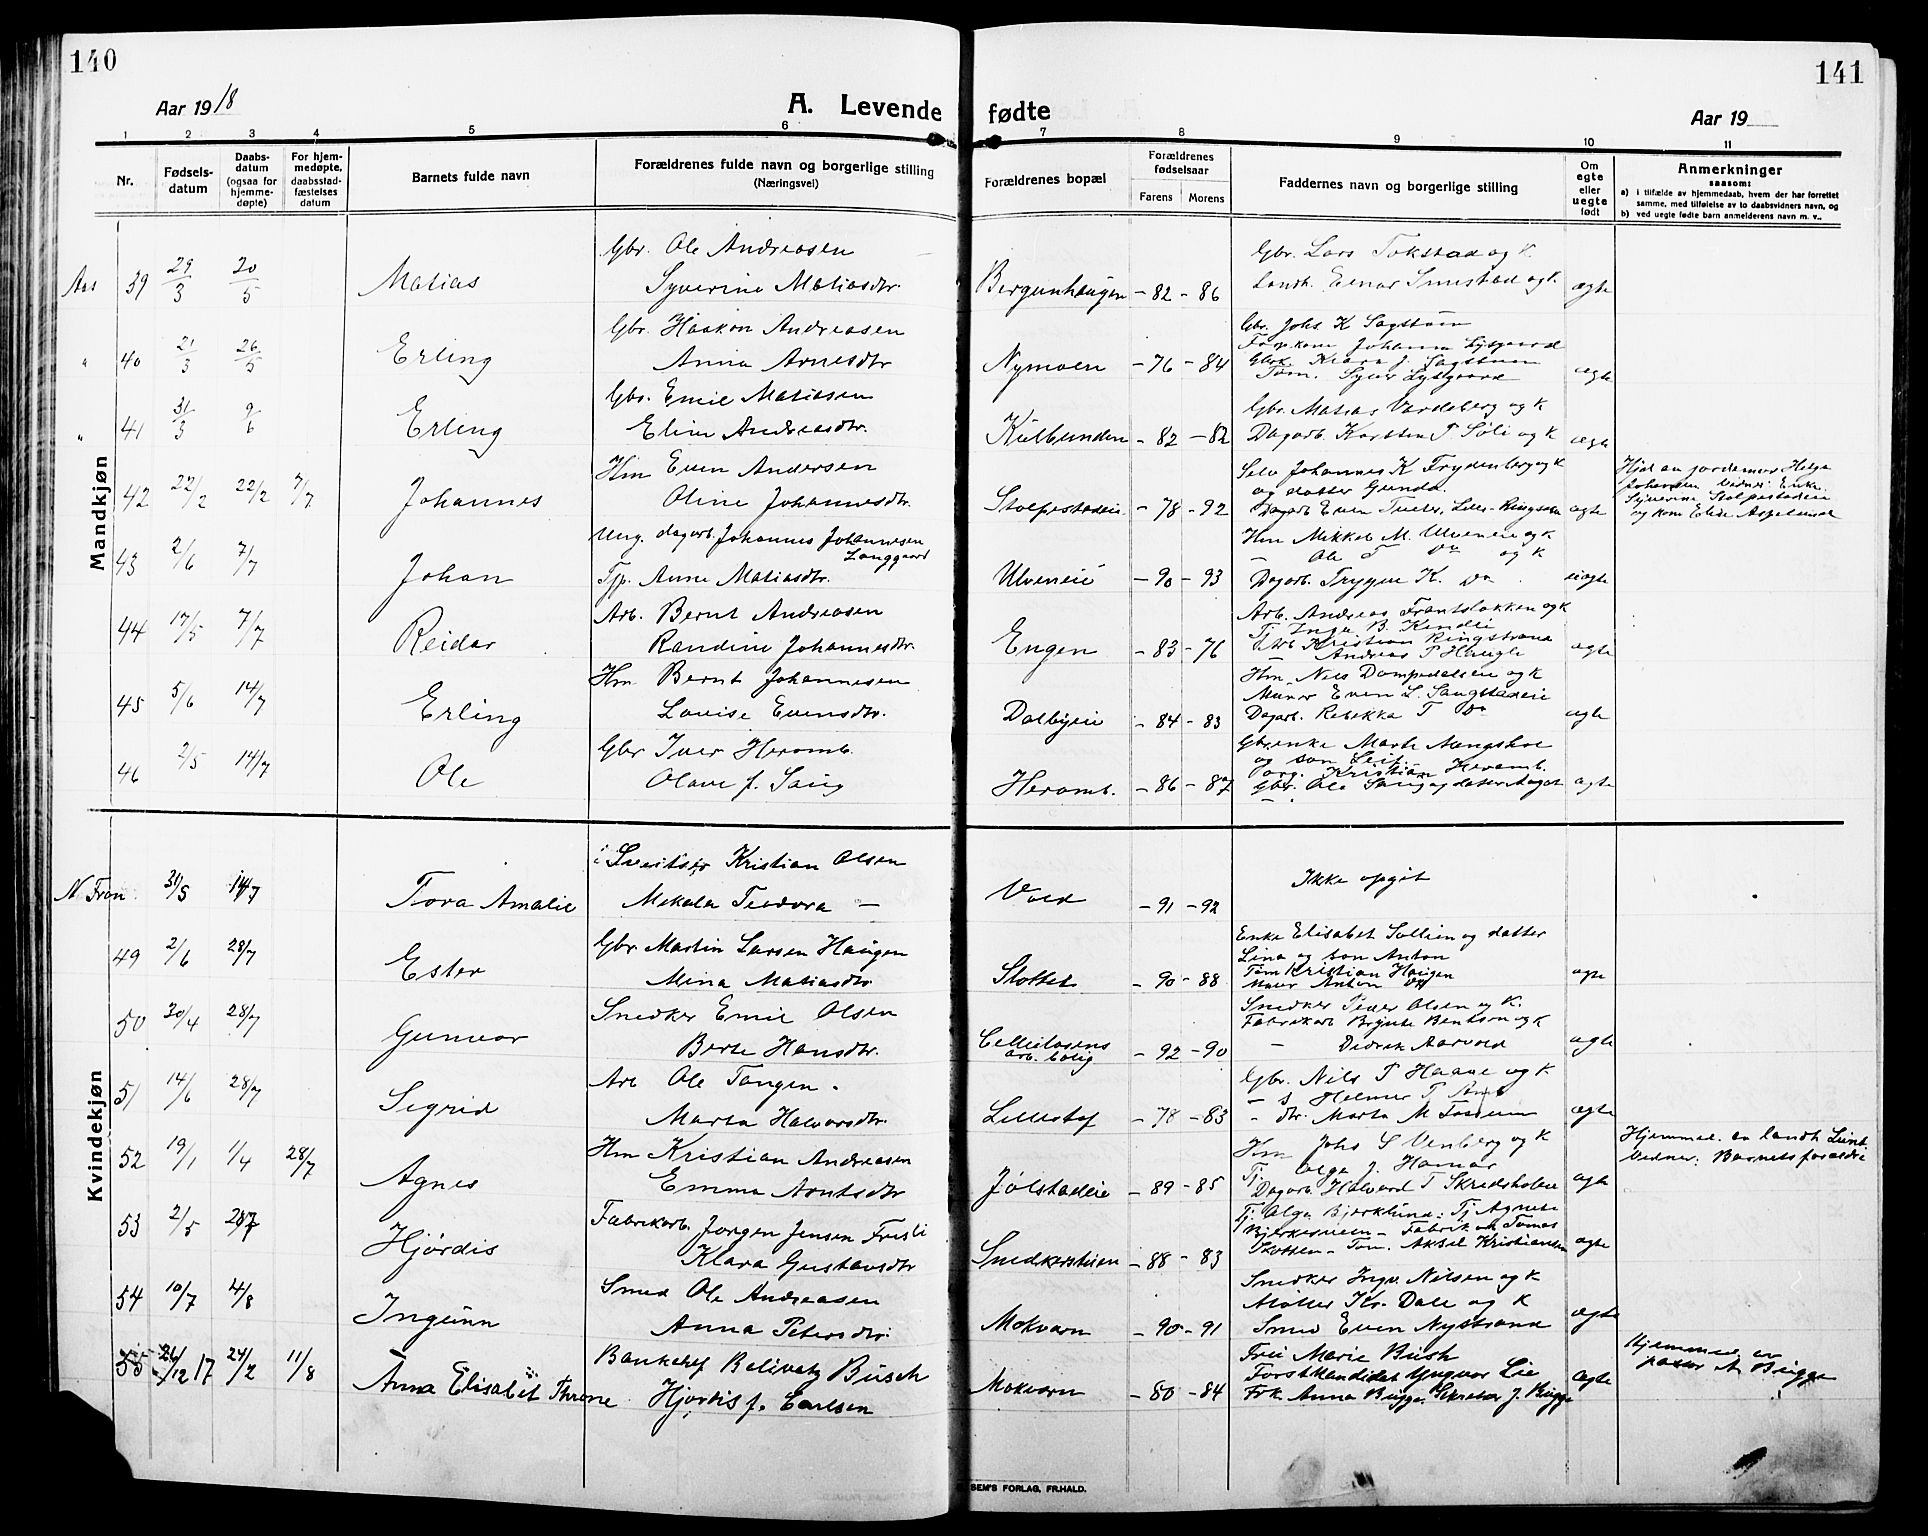 140
141
Aar 1918
A. Levende fødte
Aar 19
1 2 3 4 5 6 7 8 9 10 11
Nr.
Fødsels-
datum
Daabs-
datum
(ogsaa for
hjemme-
døpte)
For hjem-
medøpte,
daabsstad-
fæstelses
datum
Barnets fulde navn
Forældrenes fulde navn og borgerlige stilling
(Næringsvei)
Forældrenes bopæl
Forældrenes
fødselsaar
Farens Morens
Faddernes navn og borgerlige stilling
Om
egte
eller
uegte
født
Anmerkninger
saasom:
a) i tilfælde av hjemmedaab, hvem der har forrettet
samme, med tilføielse av to daabsvidners navn, og
b) ved uegte fødte barn anmelderens navn m. v..
Mandkjøn
Aas 39 29/3 20/5 Matias
Gbr. Ole Andreasen
Syverine Matiasdtr.
Bergunhaugen - 82 - 86
Gbr. Lars Tokstad og k
Landh. Einar Smestad og k.
ægte
" 40 21/3 26/5 Erling
Gbr. Haakon Andreasen
Anna Arnesdtr
Nymoen - 76 - 84
Gbr. Johs K Sagstuen
Johanna Lysgaard
Klara J. Sagstuen
Tøm. Syver Lysgaard
ægte
" 41 31/3 9/6 Erling
Gbr. Emil Matiasen
Eline Andreasdtr.
Kulbunden - 82 - 82
Gbr. Matias Vardeberg og k
Dagarb. Karsten T Søli og k
ægte
42 22/2 22/2 7/7 Johannes
Hm Even Andersen
Oline Johannesdtr.
Stolpestadeie - 78 - 92
Selv Johannes K Frydenberg og k
og datter Gunda.
Dagarb Even Tveter, Lille-Ringsen
ægte
Hjd av jordemor Helga
Johansen Vidner: Enke
Syverine Stolpestadeie
og kone Elise Aspelund
43 2/6 7/7 Johan
Ung. dagarb. Johannes Johannesen
Langgaard
Tjp. Anne Matiasdtr.
Ulveneie - 90 - 93
Hm Mikkel M. Ulveneie og k
- Ole T do og k
Dagarb. Trygve K. do.
uægte
44 17/5 7/7 Reidar
Arb. Bernt Andreasen
Randine Johannesdtr.
Engen - 83 - 76
Arb. Andreas Frantsløkken og k
Tj Inga B. Kindli
Arb Kristian Ringstrand
Andreas P Haugli
ægte
45 5/6 14/7 Erling
Hm. Bernt Johannesen
Lovise Evensdtr.
Dælbyeie - 84 - 83
Hm. Nils Dompedalseie og k
Murer Even L. Saugstadeie
Dagarb. Rebekka T do
ægte
46 2/5 14/7 Ole
Gbr Iver Heramb.
Olave f. Saug
Heramb. - 86 - 87
Gbr.enke Marte Mængshoe
og søn Leif.
Kristian Heramb.
Gbr. Ole Saug og datter Aagot
ægte
Kvindekjøn
N. Fron 31/5 14/7 Tora Amalie
Sveitser Kristian Olsen
Mekala Teodora -
Vold - 91 - 92
Ikke opgit
49 2/6 28/7 Ester
Gbr Martin Larsen Haugen
Mina Matiasdtr
Slottet - 90 - 88
Enke Elisabet Sollien og datter
Lina og søn Anton
Tøm Kristian Haugen
Murer Anton do
ægte
50 30/4 28/7 Gunvor
Snedker Emil Olsen
Berte Hansdtr.
Cellulosens
arb. bolig - 92 - 90
Snedker Peder Olsen og k.
Fabrikarb Brynte Bentsen og k
- Didrik Aarvold
ægte
51 14/6 28/7 Sigrid
Arb Ole Tangen.
Marta Halvorsdtr.
Lillestof - 78 - 83
Gbr. Nils T Haave og k
- s Helmer T Aas
- dtr. Marta M Fossum
ægte
52 19/1 1/4 28/7 Agnes
Hm Kristian Andreasen
Emma Arntsdtr
Jølstadeie - 89 - 85
Hm Johs S Venberg og k
Tj Olga J. Hamar
Dagarb. Halvard T Skredsholen
ægte
Hjemmed. av landh Lund
Vidner: Barnets forældre
53 2/5 28/7 Hjørdis
Fabrikarb. Jørgen Jensen Fresli
Klara Gustavsdtr
Snedkerstuen - 88 - 83
Tj. Olga Bjørklund: Tj Agnete
Bjerkesveen - Fabrik arb Tomas
Slotten - Tøm. Aksel Kristiansen
ægte
54 10/7 4/8 Ingunn
Smed Ole Andreasen
Anna Petersdtr.
Mokvarn - 90 - 91
Snedker Ingv. Nilsen og k
Møller Kr. Dale og k
Smed Even Nystrand
ægte
55 26/12 17 24/2 11/8 Anna Elisabet Throne
Bankchef Bolivatz Busch
Hjørdis f. Carlsen
Mokvarn - 80 - 84
Fru Marie Bush
Forstkandidat Yngvar Lie
Frk. Anna Brügge. Sekretær J. Brügge
ægte
Hjemmed av
pastor A Brügge
SEM'S FORLAG, FR.HALD.